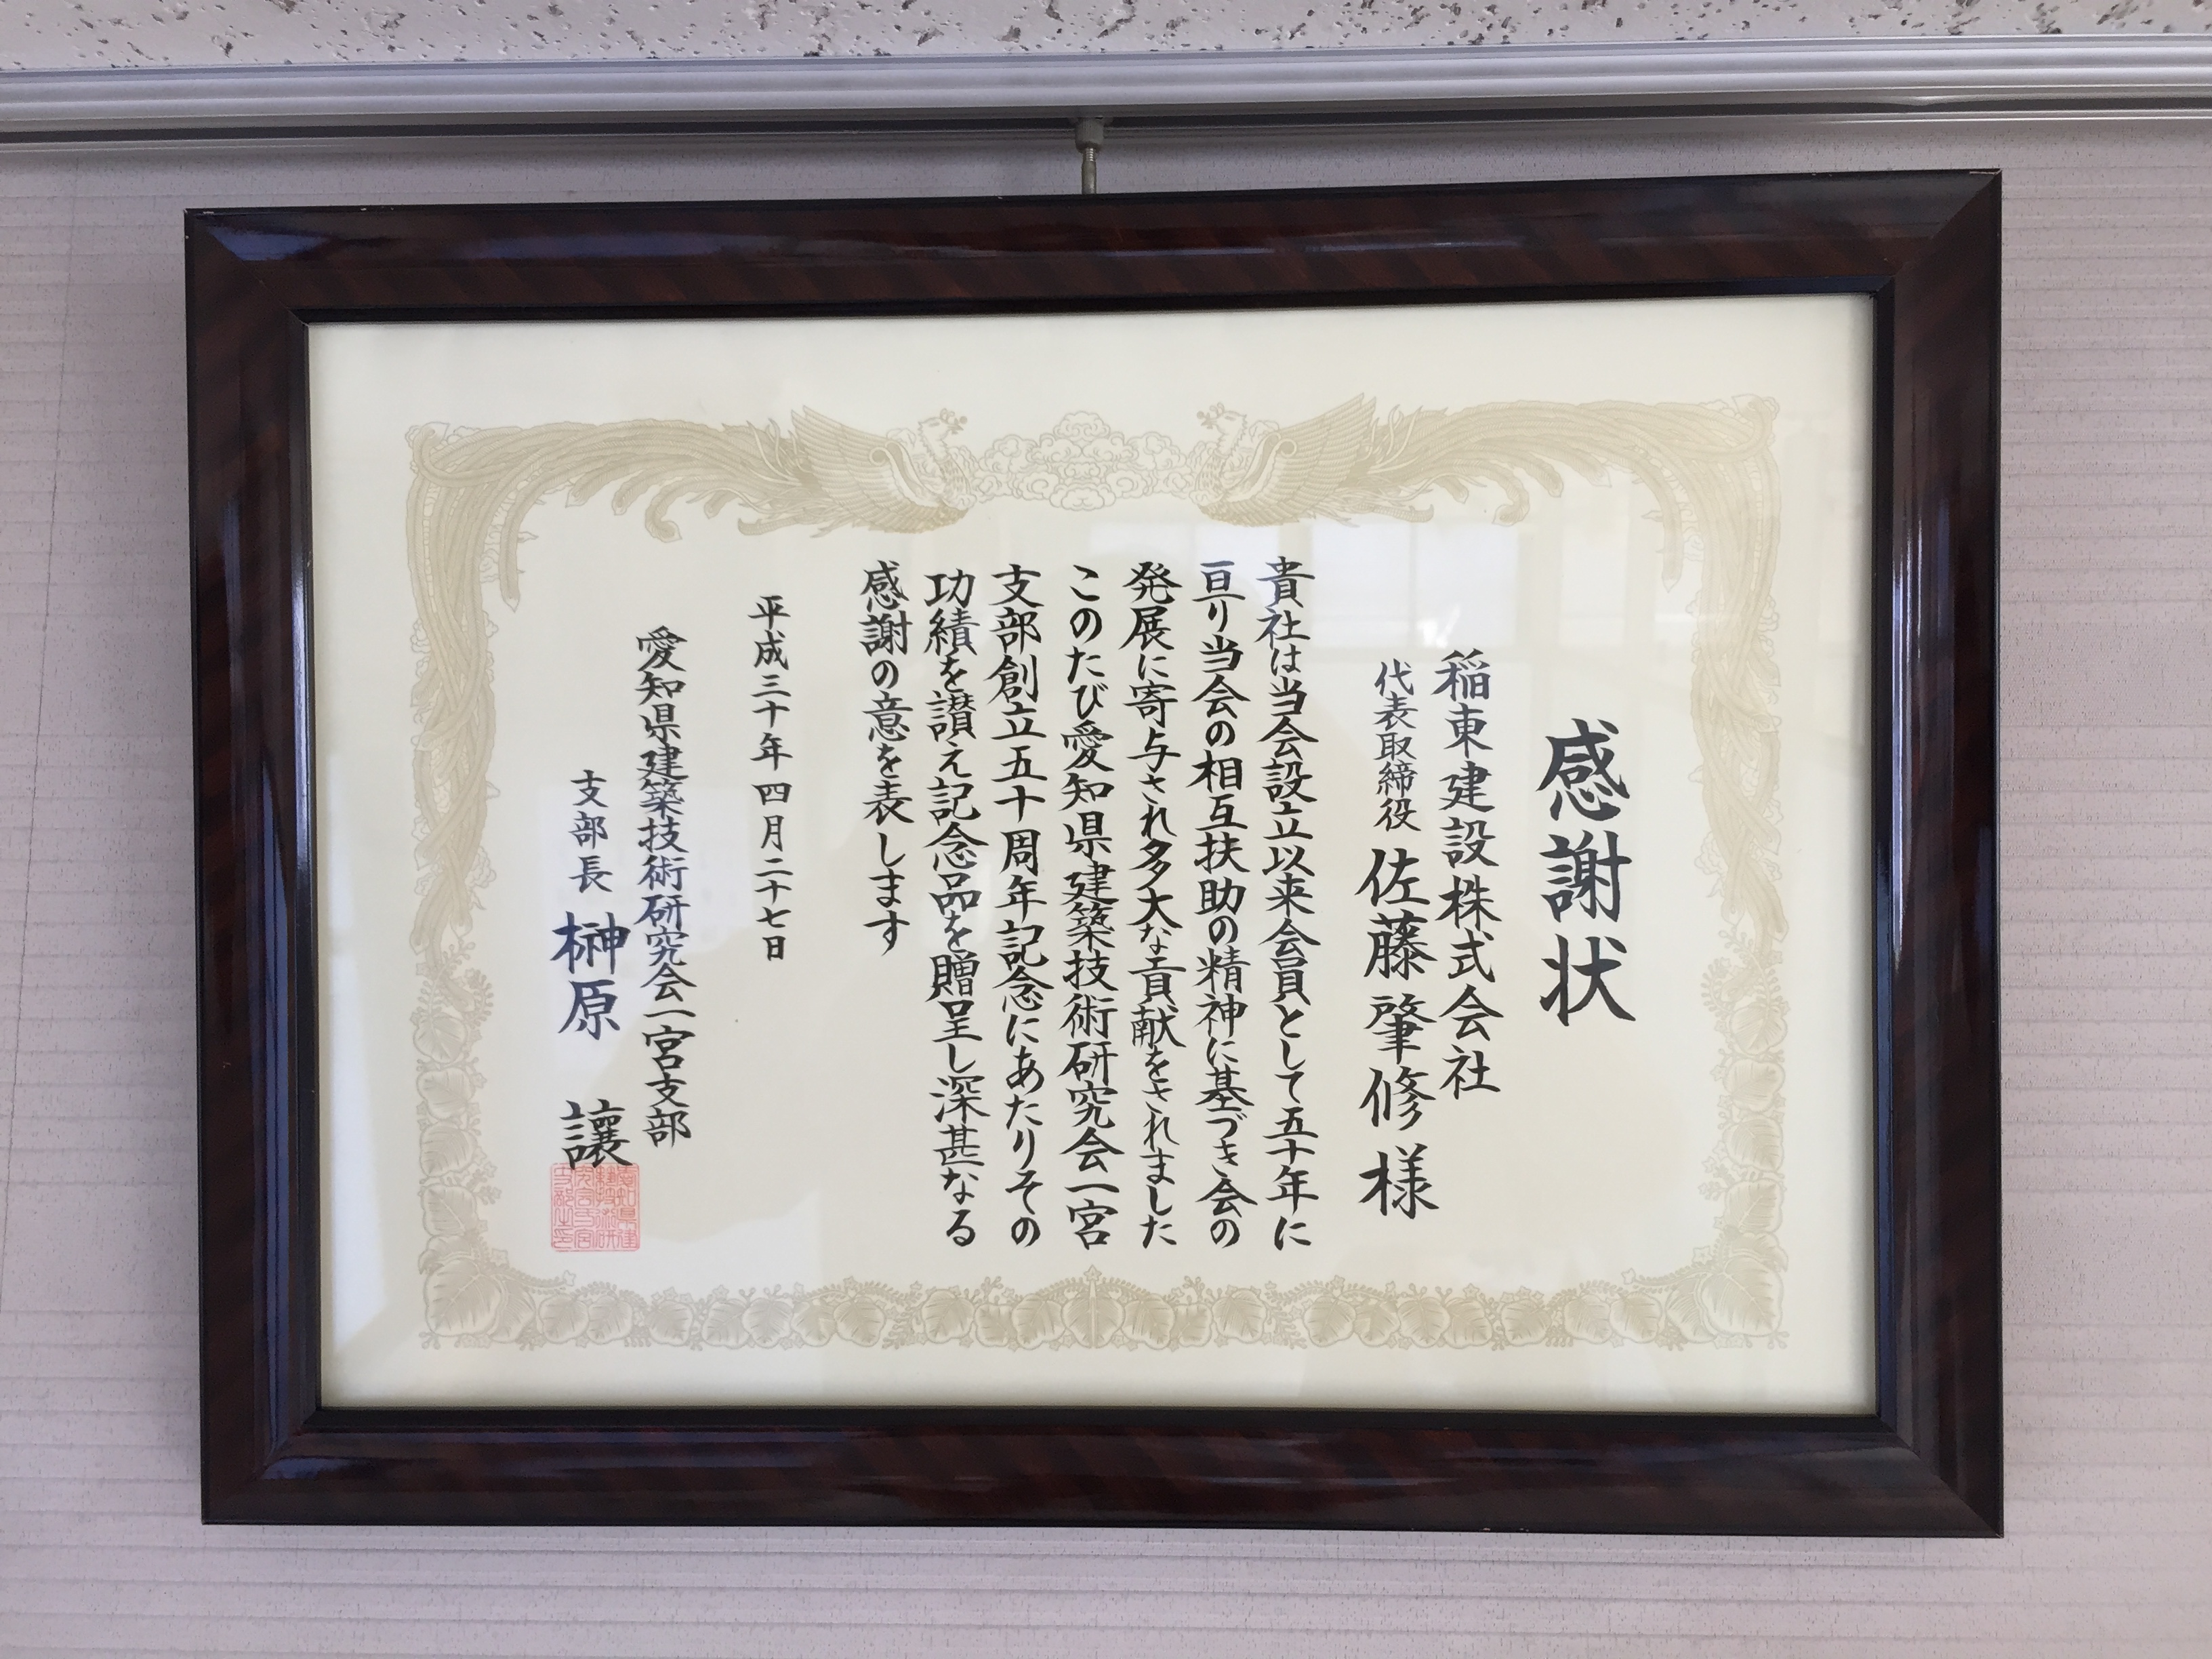 感謝状
稲東建設株式会社
代表取締役 佐藤肇修様
貴社は当会設立以来会員として五十年に
亘り当会の相互扶助の精神に基づき会の
発展に寄与され多大な貢献をされました
このたび愛知県建築技術研究会一宮
支部創立五十周年記念にあたりその
功績を讃え記念品を贈呈し深甚なる
感謝の意を表します
平成三十年四月二十七日
愛知県建築技術研究会一宮支部
支部長 榊原 讓